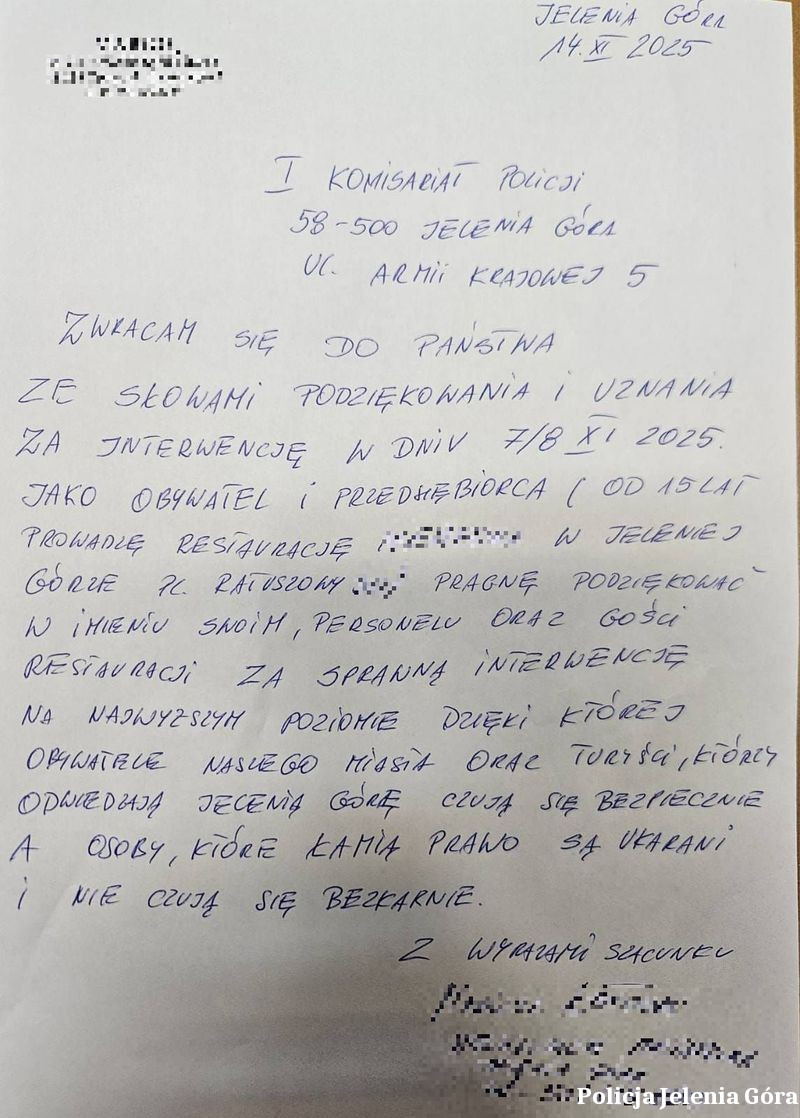 JELENIA GÓRA
14.XI 2025
I KOMISARIAT POLICJI
58-500 JELENIA GÓRA
UL. ARMII KRAJOWEJ 5
ZWRACAM SIĘ DO PAŃSTWA
ZE SŁOWAMI PODZIĘKOWANIA I UZNANIA
ZA INTERWENCJĘ W DNIU 7/8 XI 2025.
JAKO OBYWATEL I PRZEDSIĘBIORCA ( OD 15 LAT
PROWADZĘ RESTAURACJĘ W JELENIEJ
GÓRZE PL. RATUSZOWY PRAGNĘ PODZIĘKOWAĆ
W IMIENIU SWOIM, PERSONELU ORAZ GOŚCI
RESTAURACJI ZA SPRAWNĄ INTERWENCJĘ
NA NAJWYZSZYM POZIOMIE DZIĘKI KTÓREJ
OBYWATELE NASZEGO MIASTA ORAZ TURYŚCI, KTÓRZY
ODWIEDZAJĄ JELENIĄ GÓRĘ CZUJĄ SIĘ BEZPIECZNIE
A OSOBY, KTÓRE ŁAMIĄ PRAWO SĄ UKARANI
I NIE CZUJĄ SIĘ BEZKARNIE.
Z WYRAZAMI SZACUNKU
Policja Jelenia Góra